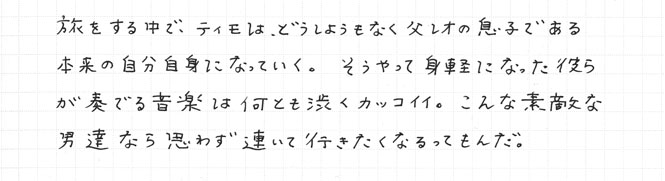 旅をする中で、ティモは、どうしようもなく父レオの息子である
本来の自分自身になっていく。 そうやって身軽になった彼ら
が奏でる音楽は何とも渋くカッコイイ。こんな素敵な
男達なら思わず連いて行きたくなるってもんだ。